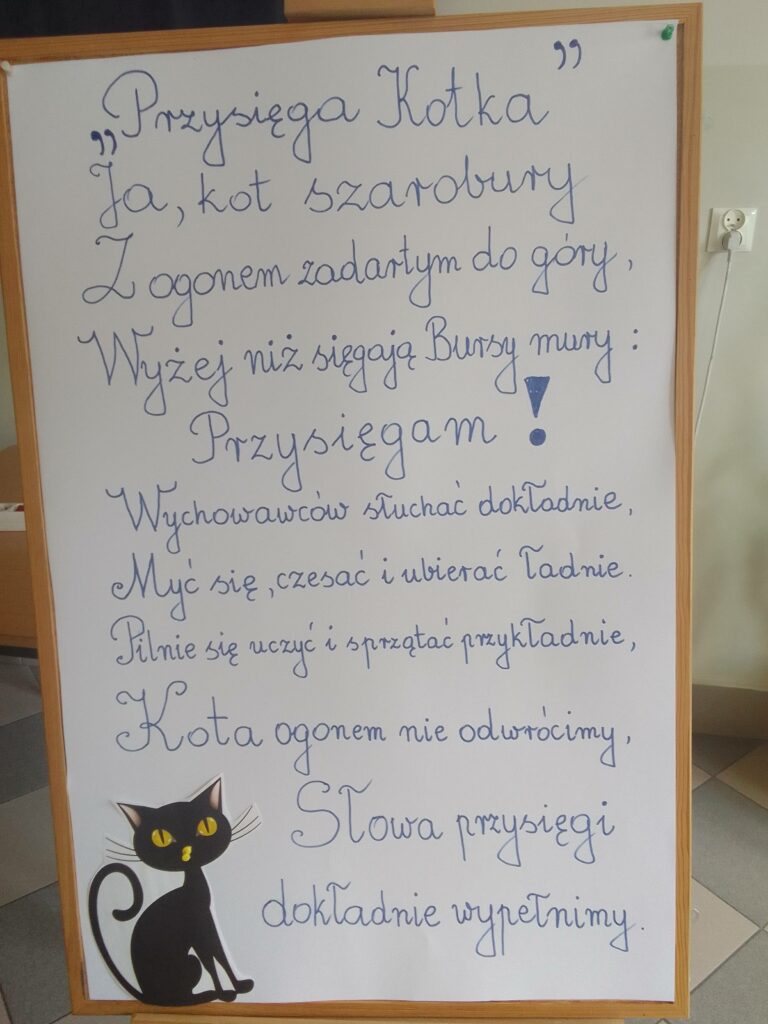 „Przysięga Kotka”
Ja, kot szarobury
Z ogonem zadartym do góry,
Wyżej niż sięgają Bursy mury:
Przysięgam!
Wychowawców słuchać dokładnie,
Myć się, czesać i ubierać ładnie.
Pilnie się uczyć i sprzątać przykładnie,
Kota ogonem nie odwrócimy,
Słowa przysięgi
dokładnie wypełnimy.